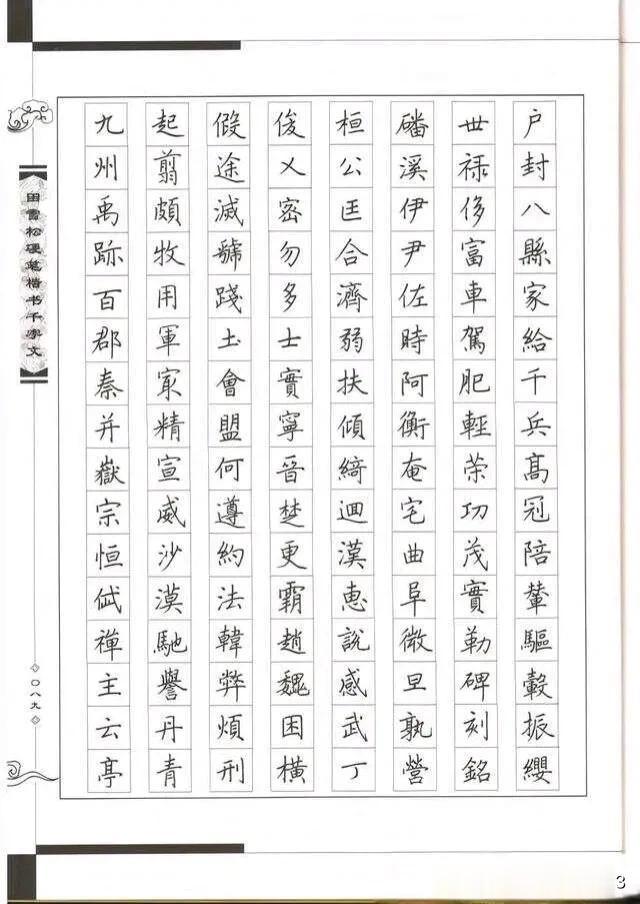 戶封八縣家給千兵髙冠陪輦驅轂振纓
世禄侈富車駕肥輕荣功茂實勒碑刻銘
磻溪伊尹佐時阿衡奄宅曲阜微旦孰營
桓公匡合濟弱扶傾綺迴漢惠說感武丁
俊乂密勿多士實寧晉楚更霸趙魏困橫
假途滅虢踐土會盟何遵約法韓弊煩刑
起翦頗牧用軍冣精宣威沙漠馳譽丹青
九州禹跡百郡秦并嶽宗恒岱禪主云亭
田雪松硬笔楷书千字文
○八九
3